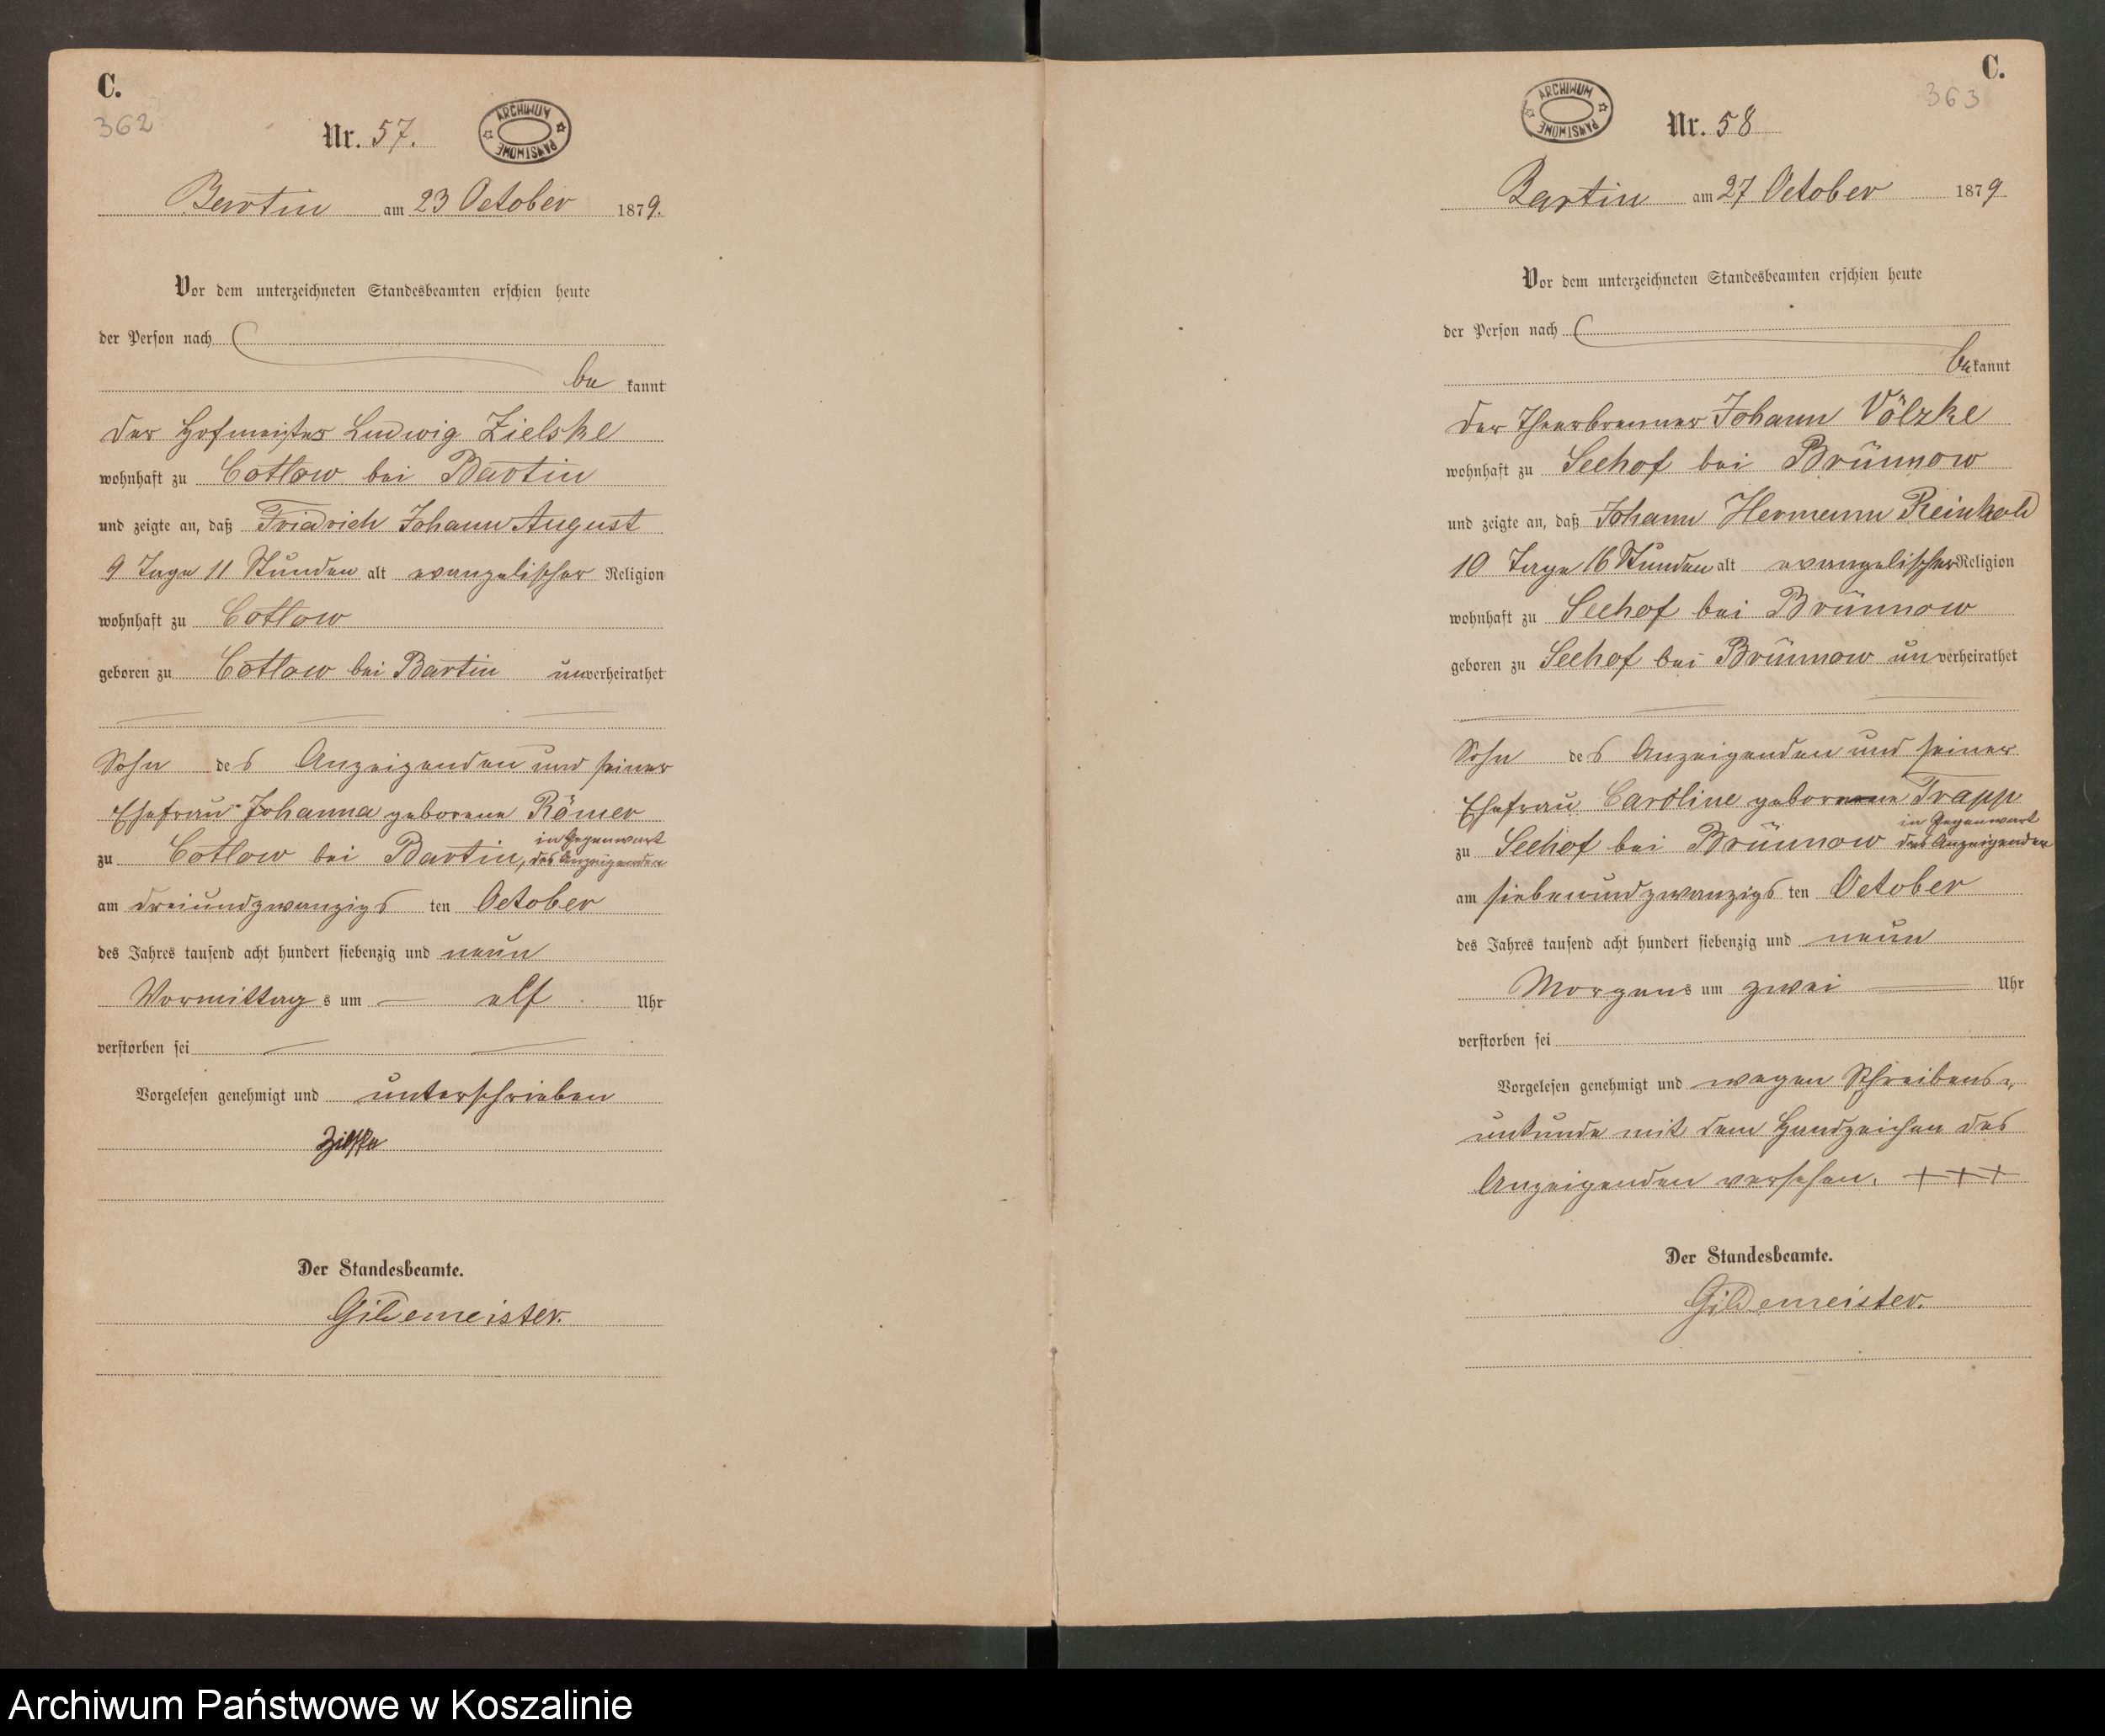 C.
362
Nr. 57.
ARCHIWUM PAŃSTWOWE
Bartin am 23 October 1879.
Vor dem unterzeichneten Standesbeamten erschien heute
der Person nach
be kannt
der Hofmeister Ludwig Zielske
wohnhaft zu Cotlow bei Bartin
und zeigte an, daß Friedrich Johann August
9 Tage 11 Stunden alt evangelischer Religion
wohnhaft zu Cotlow
geboren zu Cotlow bei Bartin unverheirathet
Sohn des Anzeigenden und seiner
Ehefrau Johanna geborene Römer
zu Cotlow bei Bartin, in Gegenwart des Anzeigenden
am dreiundzwanzigs ten October
des Jahres tausend acht hundert siebenzig und neun
Vormittag s um elf Uhr
verstorben sei
Vorgelesen genehmigt und unterschrieben
Zielske
Der Standesbeamte.
Gildemeister.
C.
363
ARCHIWUM PAŃSTWOWE
Nr. 58
Bartin am 27 October 1879
Vor dem unterzeichneten Standesbeamten erschien heute
der Person nach
bekannt
der Theerbrenner Johann Völzke
wohnhaft zu Seehof bei Brünnow
und zeigte an, daß Johann Hermann Reinhold
10 Tage 16 Stunden alt evangelischer Religion
wohnhaft zu Seehof bei Brünnow
geboren zu Seehof bei Brünnow unverheirathet
Sohn des Anzeigenden und seiner
Ehefrau Caroline geborene Trapp
zu Seehof bei Brünnow in Gegenwart des Anzeigenden
am siebenundzwanzigs ten October
des Jahres tausend acht hundert siebenzig und neun
Morgens um zwei Uhr
verstorben sei
Vorgelesen genehmigt und wegen Schreibens-
unkunde mit dem Handzeichen des
Anzeigenden versehen. +++
Der Standesbeamte.
Gildemeister.
Archiwum Państwowe w Koszalinie